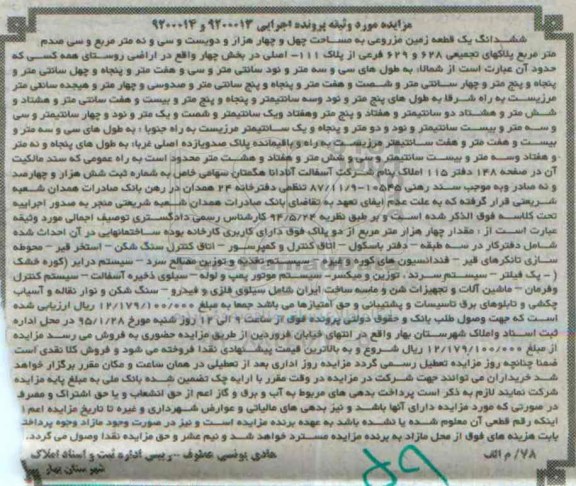 مزایده مورد وثیقه پرونده اجرایی ۹۲۰۰۰۱۳ و ۹۲۰۰۰۱۴
ششدانگ یک قطعه زمین مزروعی به مساحت چهل و چهار هزار و دویست و سی و نه متر مربع و سی صدم
متر مربع پلاکهای تجمیعی ۶۲۸ و ۶۲۹ فرعی از پلاک ۱۱۱- اصلی در بخش چهار واقع در اراضی روستای همه کسی که
حدود آن عبارت است از شمالا: به طول های سی و سه متر و نود سانتی متر و سی و هفت متر و پنجاه و چهل سانتی متر و
پنجاه و پنج متر و چهار سانتی متر و شصت و هفت متر و پنجاه و پنج سانتی متر و صدوسی و چهار متر و هیجده سانتی متر
مرزیست به راه شرقا: به طول های پنج متر و نود وسه سانتیمتر و پنجاه و پنج متر و بیست و هفت سانتی متر و هشتاد و
شش متر و هشتاد دو سانتیمتر و هفتاد و پنج متر وهفتاد ویک سانتیمتر و شصت و یک متر و نود و چهار سانتیمتر و سی
و سه متر و بیست سانتیمتر و نود و دو متر و پنجاه و یک سانتیمتر مرزیست به راه جنوبا : به طول های سی و سه متر و
بیست و هفت متر و هفت سانتیمتر مرزیست به راه و باقیمانده پلاک صدویازده اصلی غربا: به طول های پنجاه و نه متر
و هفتاد وسه متر و بیست سانتیمتر و سی و شش متر و هفتاد و هشت متر محدود است به راه عمومی که سند مالکیت
آن در صفحه ۱۴۸ دفتر ۱۱۵ املاک بنام شرکت آسفالت آنادانا هگمتان سهامی خاص به شماره ثبت شش هزار و چهارصد
و نه صادر وبه موجب سند رهنی ۱۰۵۴۵-۸۷/۱۱/۹ تنظمی دفترخانه ۲۴ همدان در رهن بانک صادرات همدان شعبه
شریعتی قرار گرفته که به علت عدم ایفای تعهد به تقاضای بانک صادرات همدان شعبه شریعتی منجر به صدور اجراییه
تحت کلاسه فوق الذکر شده است و بر طبق نظریه ۹۴/۵/۲۴ کارشناس رسمی دادگستری توصیف اجمالی مورد وثیقه
عبارت است از : مقدار چهار هزار متر مربع از دو پلاک فوق دارای کاربری کارخانه بوده ساختمانهایی در آن احداث شده
شامل دفترکار در سه طبقه – دفتر باسکول – اتاق کنترل و کمپرسور – اتاق کنترل سنگ شکن – استخر قیر – محوطه
سازی تانکرهای قیر – فندانسیون های کوره و غیره – سیستم تغذیه و توزین مصالح سرد – سیستم درایر (کوره خشک
(– پک فیلتر – سیستم سرند، توزین و میکسر – سیستم موتور پمپ و لوله – سیلوی ذخیره آسفالت – سیستم کنترل
وفرمان – ماشین آلات و تجهیزات شن و ماسه ساخت ایران شامل سیلوی فلزی و فیدرو – سنگ شکن و نوار نقاله و آسیاب
چکشی و تابلوهای برق تاسیسات و پشتیبانی و حق امتیازها می باشد جمعا به مبلغ ۱۲/۱۷۹/۱۰۰/۰۰۰ ریال ارزیابی شده
است که جهت وصول طلب بانک و حقوق دولتی پرونده فوق از ساعت ۹ الی ۱۲ روز شنبه مورخ ۹۵/۱/۲۸ در محل اداره
ثبت اسناد واملاک شهرستان بهار واقع در انتهای خیابان فروردین از طریق مزایده حضوری به فروش می رسد مزایده
از مبلغ ۱۲/۱۷۹/۱۰۰/۰۰۰ ریال شروع و به بالاترین قیمت پیشنهادی نقدا فروخته می شود و فروش کلا نقدی است
ضمنا چنانچه روز مزایده تعطیل رسمی گردد مزایده روز اداری بعد از تعطیلی در همان ساعت و مکان مقرر برگزار خواهد
شد خریداران می توانند جهت شرکت در مزایده در وقت مقرر با ارایه چک تضمین شده بانک ملی به مبلغ پایه مزایده
شرکت نمایند لازم به ذکر است پرداخت بدهی های مربوط به آب و برق و گاز اعم از حق انشعاب و یا حق اشتراک و مصرف
در صورتی که مورد مزایده دارای آنها باشد و نیز بدهی های مالیاتی و عوارض شهرداری و غیره تا تاریخ مزایده اعم از
اینکه رقم قطعی آن معلوم شده یا نشده باشد به عهده برنده مزایده است و نیز در صورت وجود مازاد وجوه پرداختی
بابت هزینه های فوق از محل مازاد به برنده مزایده مسترد خواهد شد و نیم عشر و حق مزایده نقدا وصول می گردد.
۷۸/ م الف
هادی یونسی عطوف – رییس اداره ثبت و اسناد املاک
شهرستان بهار